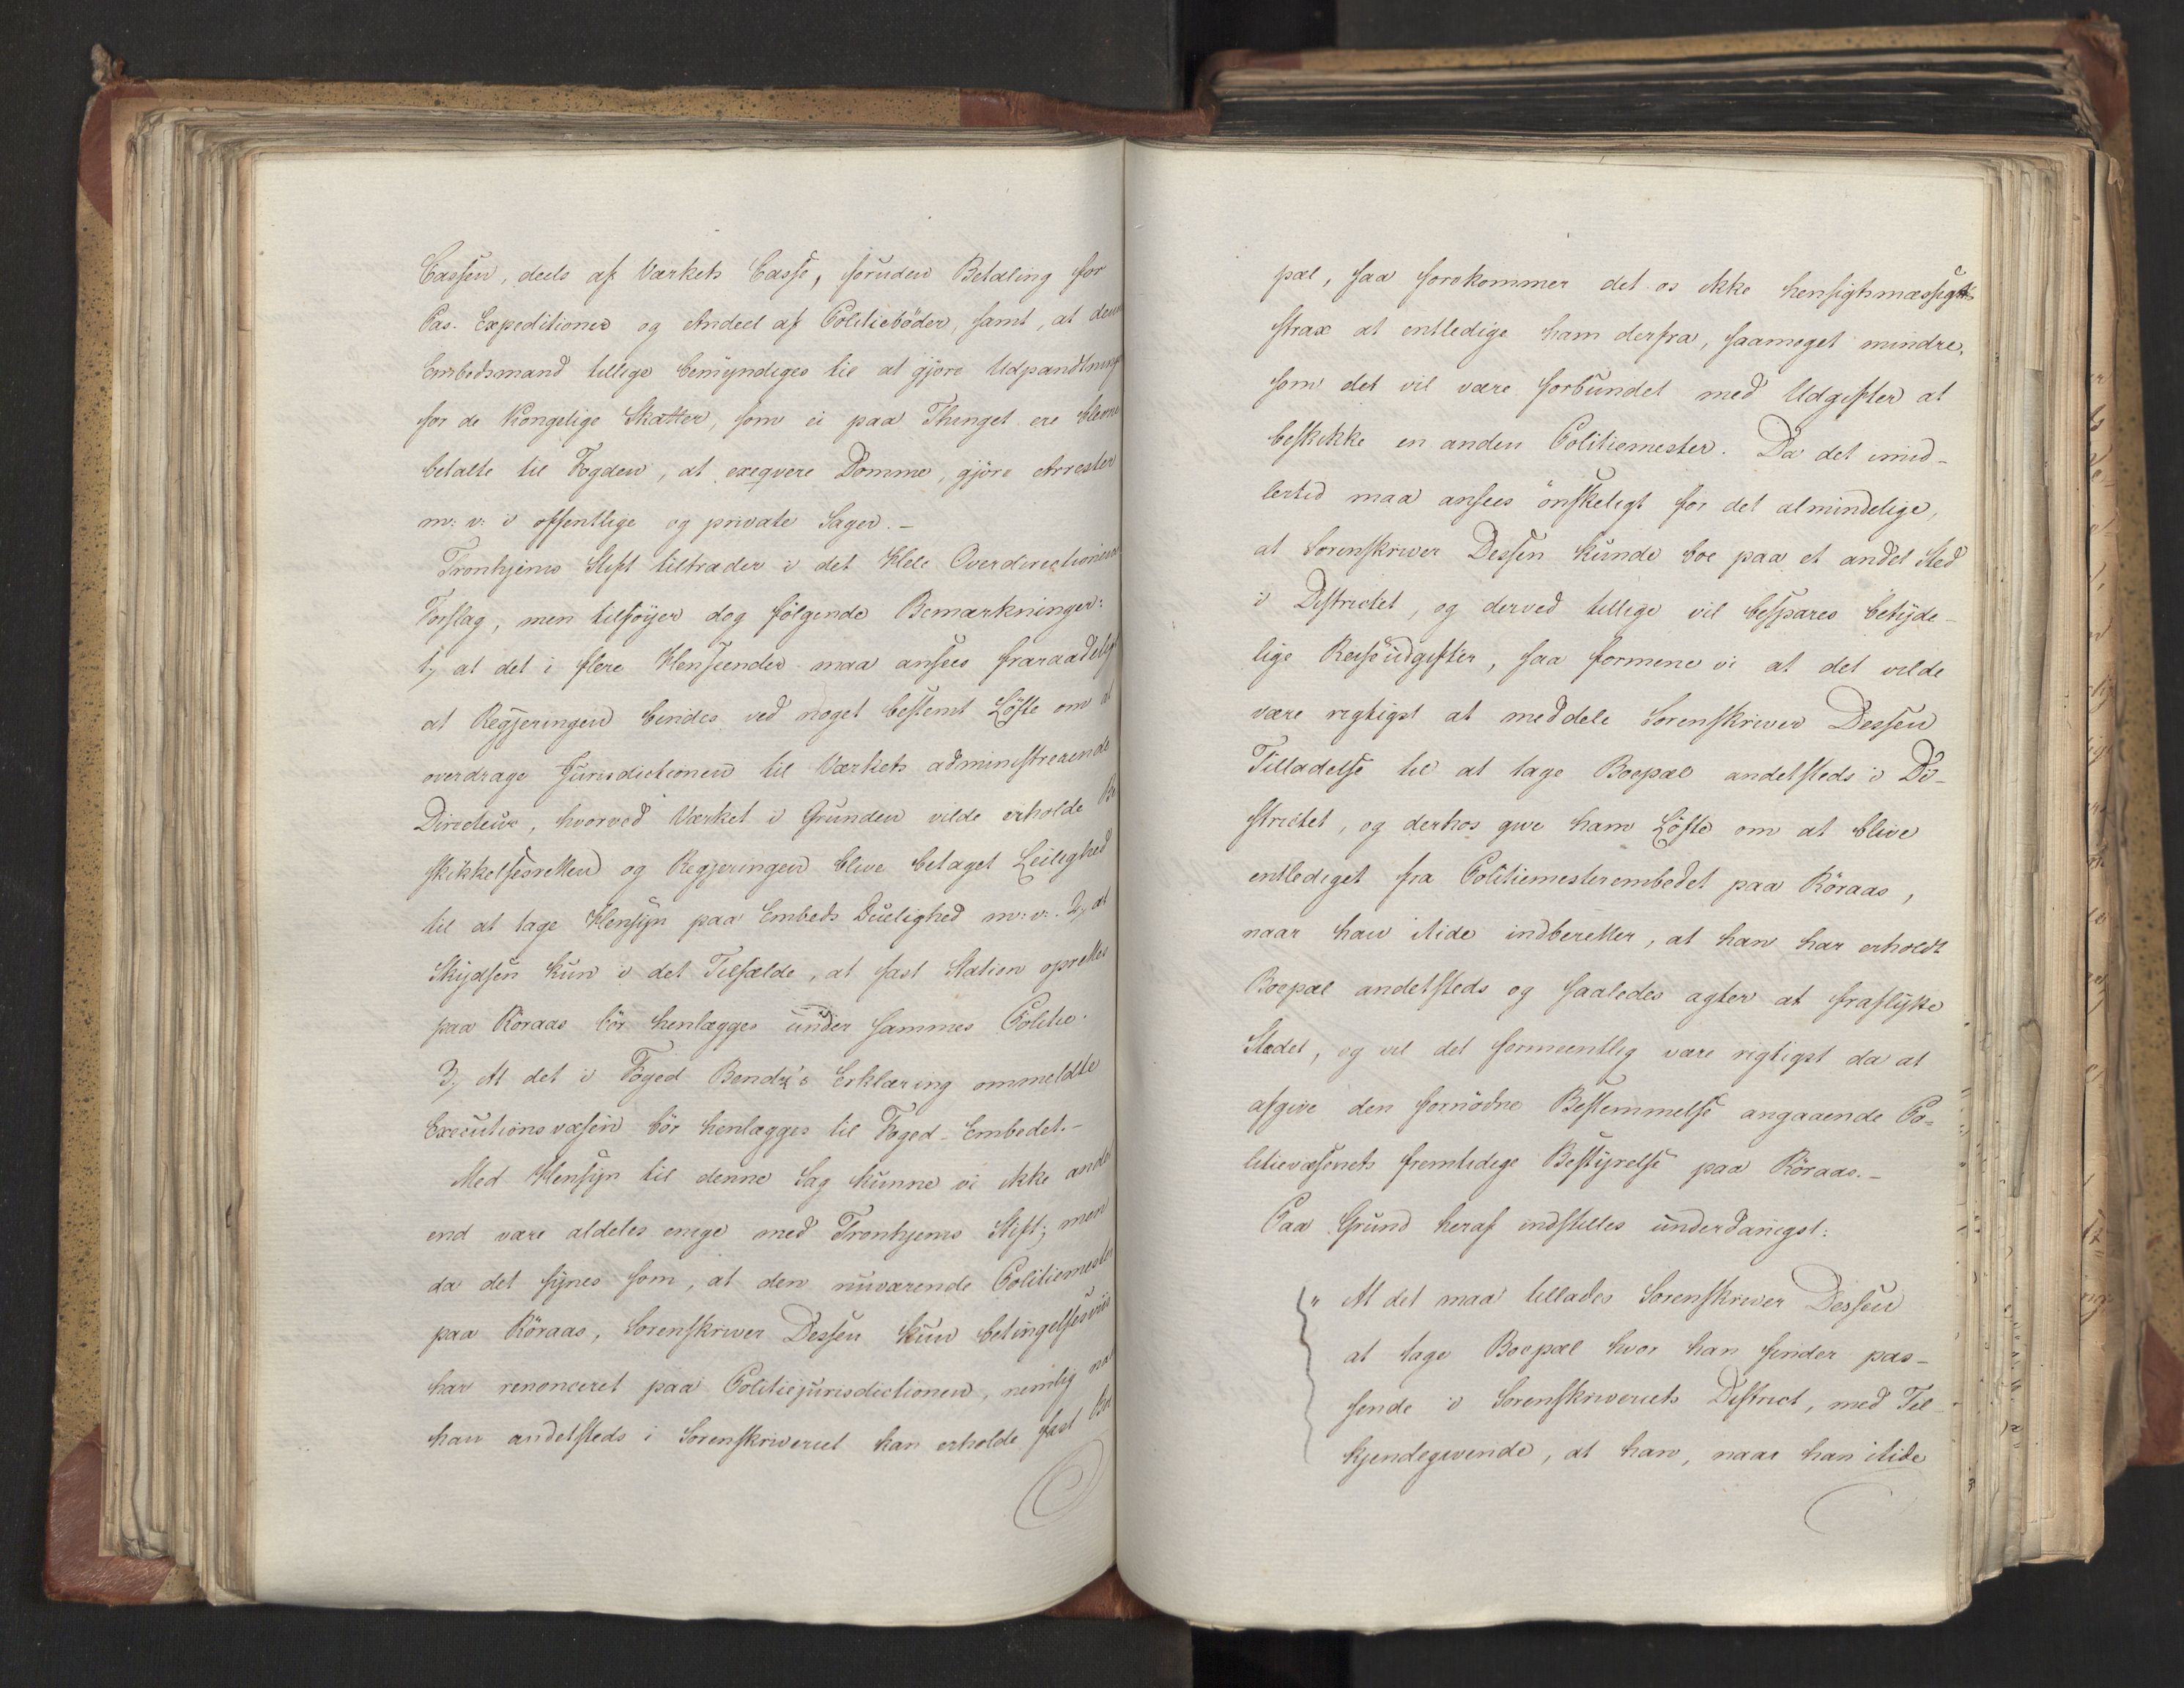 Cassen, deels af Værkets Casse, foruden Betaling for
Pas-Expeditioner og Andeel af Politiebøder, samt, at denne
Embedsmand tillige bemyndiges til at gjøre Udpantning
for de Kongelige Skatter, som ei paa Thinget ere blevne
betalte til Fogden, at exeqvere Domme, gjöre Arrester
m: v: i offentlige og private Sager.-
Tronhjems Stift tiltræder i det Hele Overdirectionens
Forslag, men tilføyer dog følgende Bemærkninger:
1, at det i flere Henseender maa ansees fraraadeligt
at Regjeringen bindes ved noget bestemt Löfte om at
overdrage Jurisdictionen til Værkets administrerende
Directeur, hvorved Værket i Grunden vilde erholde Be
skikkelsesretten og Regjeringen blive betaget Leilighed
til at tage Hensyn paa Embeds Duelighed m: v:. 2, at
Skydsen kun i det Tilfælde, at fast Station oprettes
paa Röraas bör henlægges under sammes Politie.
3, At det i Foged Bendz's Erklæring ommeldte
Executionsvæsen bör henlægges til Foged-Embedet.-
Med Hensyn til denne Sag kunne vi ikke andet
end være aldeles enige med Tronhjems Stift; men
da det synes som, at den nuværende Politiemester
paa Röraas, Sorenskriver Dessen kun betingelsesviis
har renonceret paa Politiejurisdictionen, nemlig naar
han andetsteds i Sorenskriveriet kan erholde fast Boe
pæl, saa forekommer det os ikke hensigtsmæssigt
strax at entledige ham derfra, saameget mindre,
som det vil være forbundet med Udgifter at
beskikke en anden Politiemester. Da det imid-
lertid maa ansees önskeligt for det almindelige,
at Sorenskriver Dessen kunde boe paa et andet Sted
i Districtet, og derved tillige vil bespares betyde-
lige Reiseudgifter, saa formene vi at det vilde
være rigtigst at meddele Sorenskriver Dessen
Tilladelse til at tage Boepæl andetsteds i Di-
strictet, og derhos give ham Löfte om at blive
entlediget fra Politiemesterembedet paa Röraas,
naar han itide indberetter, at han har erholdt
Boepæl andetsteds og saaledes agter at fraflytte
Stedet, og vil det formeentlig være rigtigst da at
afgive den fornödne Bestemmelse angaaende Po-
litievæsenets fremtidige Bestyrelse paa Röraas.-
Paa Grund heraf indstilles underdanigst:
" At det maa tillades Sorenskriver Dessen
at tage Boepæl hvor han finder pas-
sende i Sorenskriveriets District, med Til-
kjendegivende, at han, naar han itide